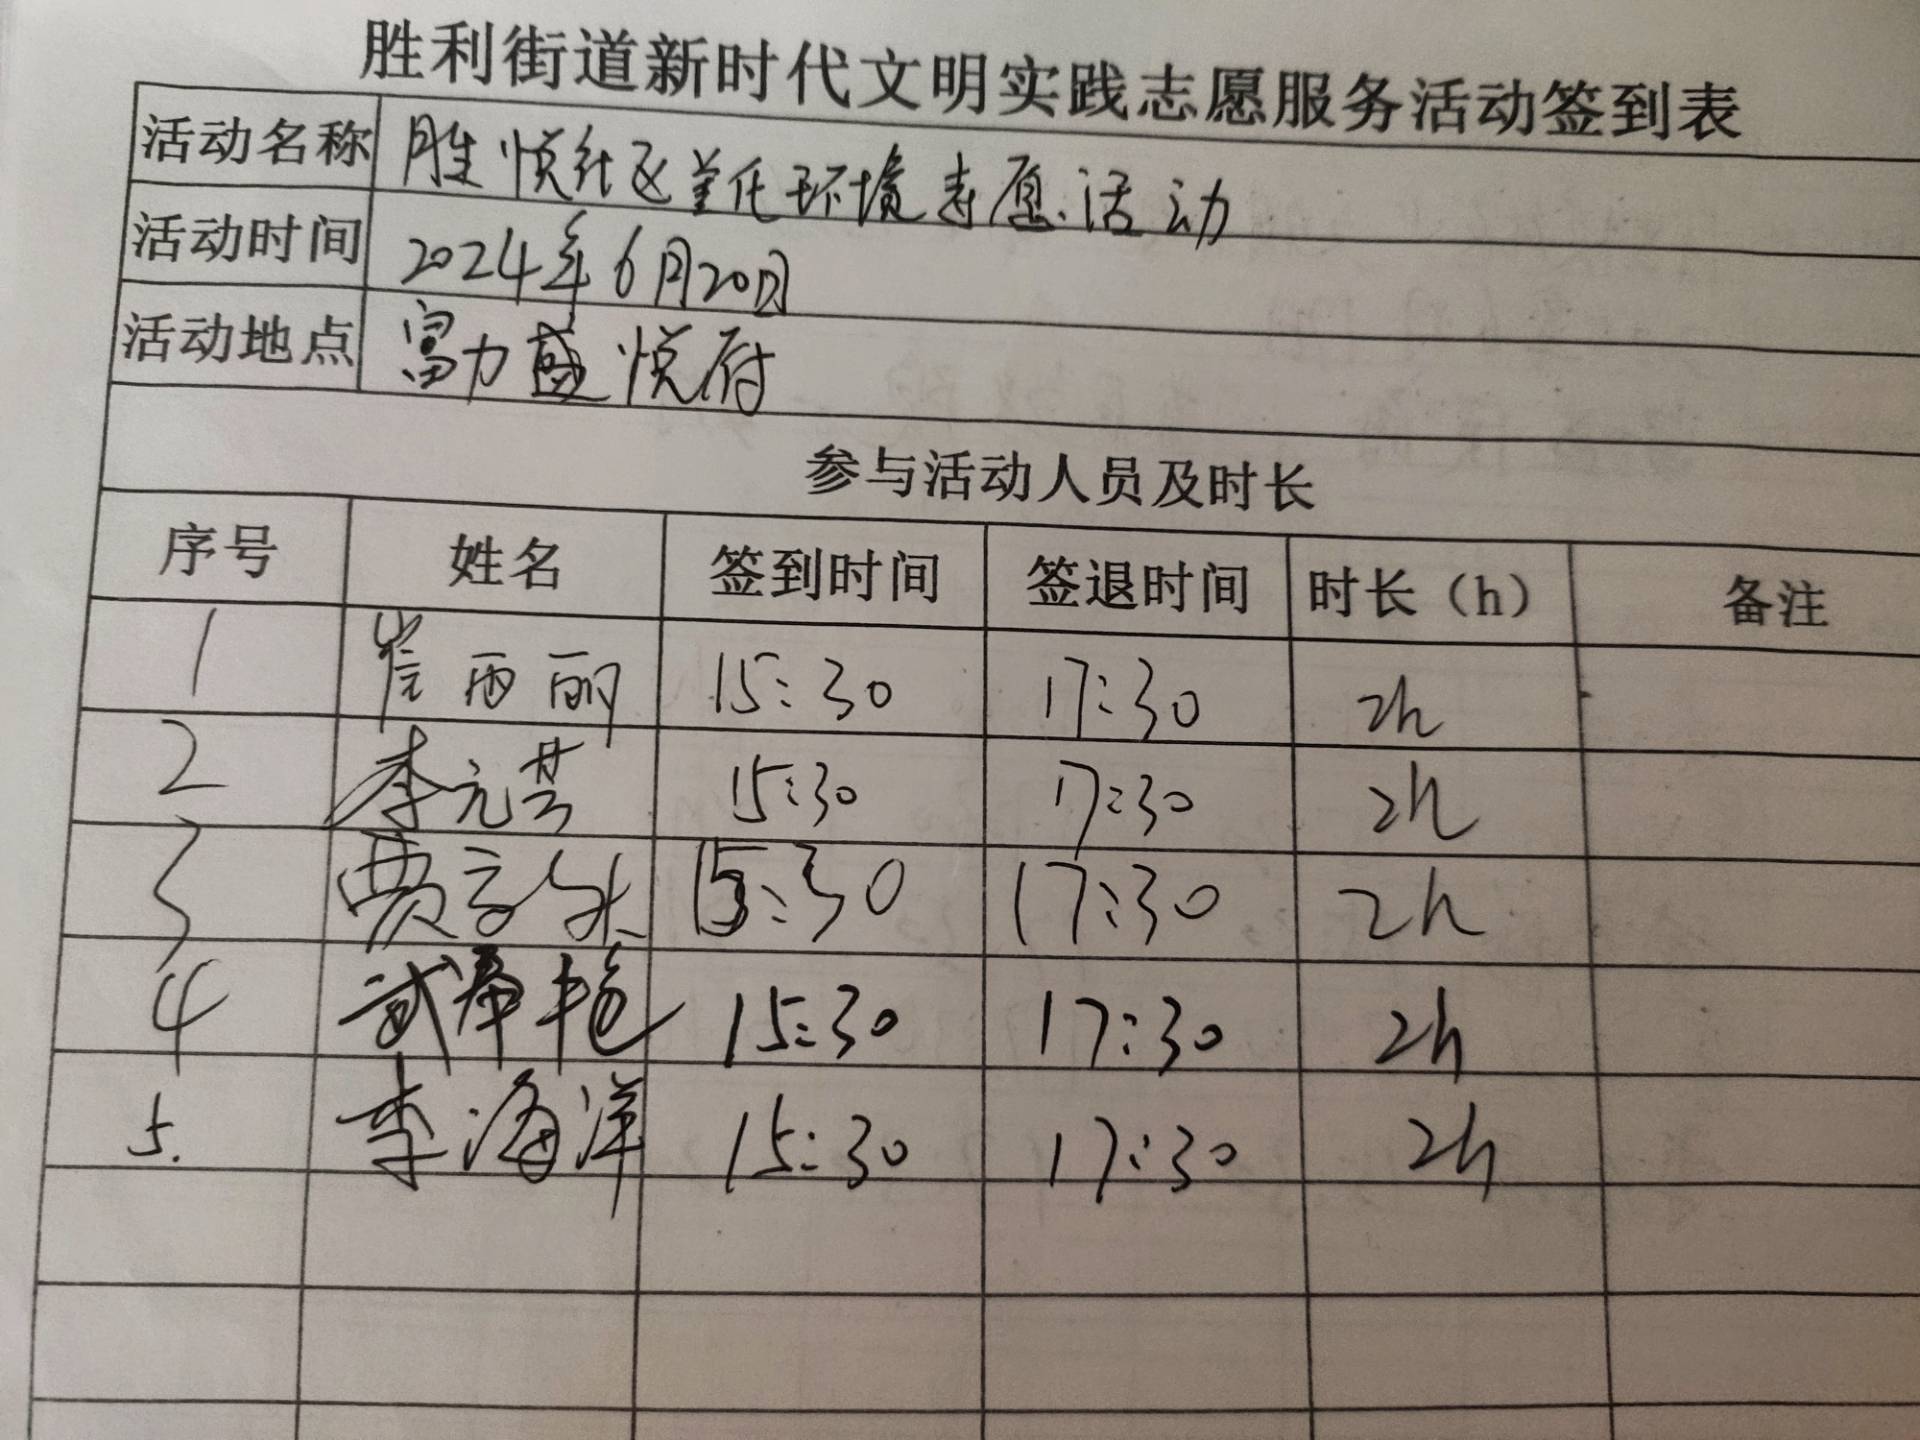 胜利街道新时代文明实践志愿服务活动签到表
活动名称 胜悦社区美化环境志愿活动
活动时间 2024年6月20日
活动地点 富力盛悦府
参与活动人员及时长
序号 姓名 签到时间 签退时间 时长（h） 备注
1 丽 15:30 17:30 2h
2 李元芸 15:30 17:30 2h
3 贾 15:30 17:30 2h
4 武 艳 15:30 17:30 2h
5. 李海洋 15:30 17:30 2h